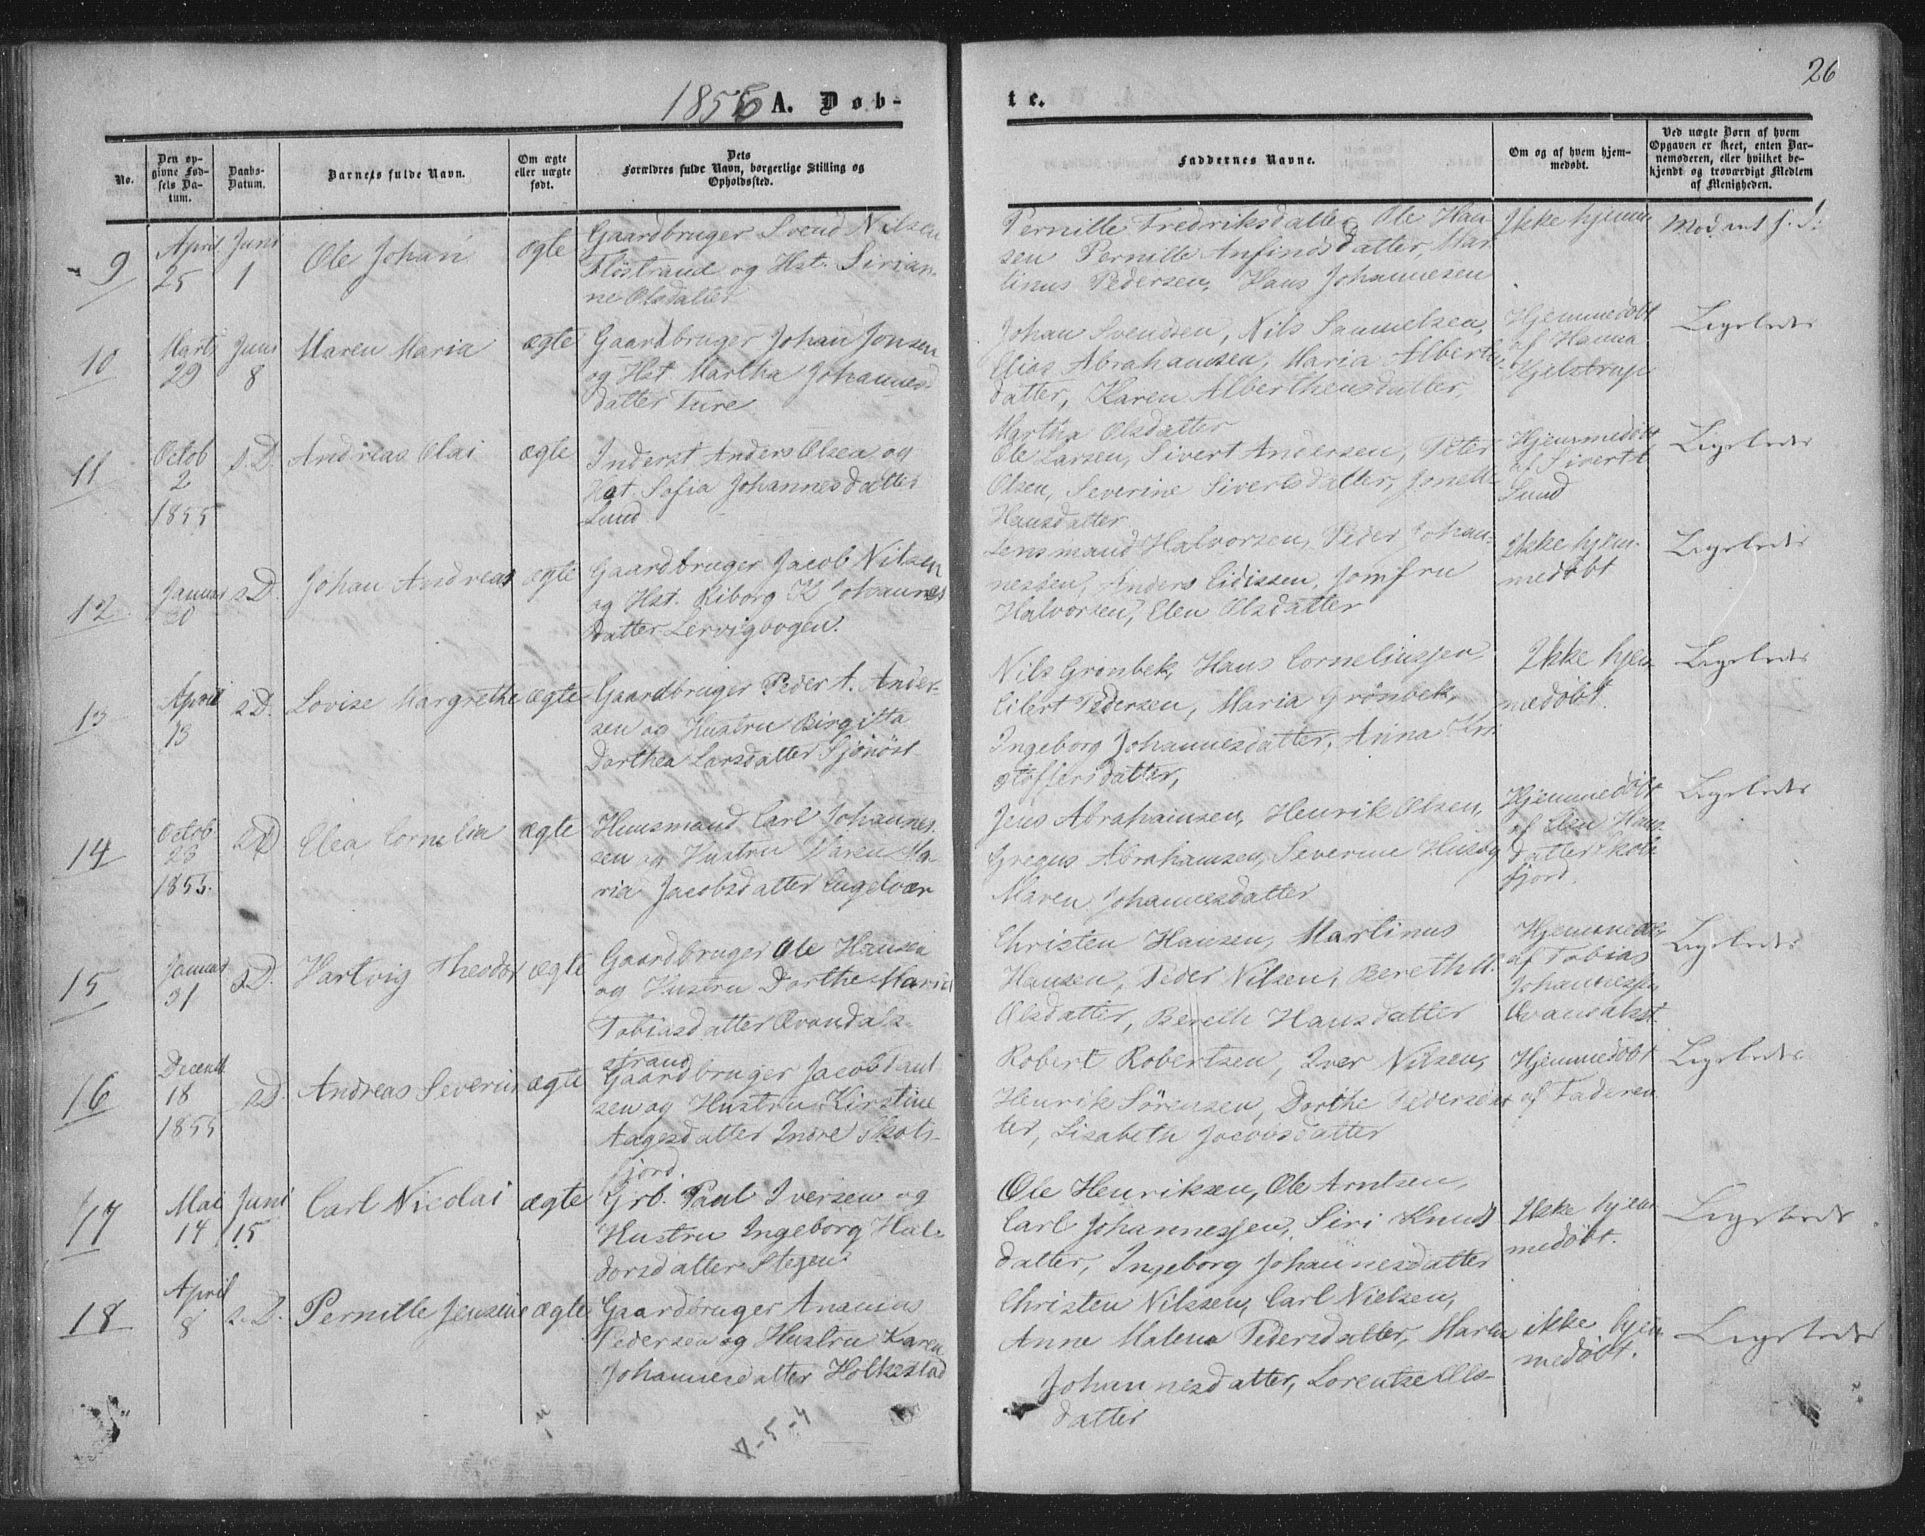 1856 A. Døb-
te.
26
No.
Den op-
givne Fød-
sels Da-
tum.
Daabs-
Datum.
Barnets fulde Navn.
Om ægte
eller uægte
født.
Dets
Forældres fulde Navn, borgerlige Stilling og
Opholdssted.
Faddernes Navne.
Om og af hvem hjem-
medøbt.
Ved uægte Børn af hvem
Opgaven er skeet, enten Bar-
nemoderen, eller hvilket be-
kjendt og troværdigt Medlem
af Menigheden.
9
April
25
Juni
1
Ole Johan
ægte
Gaardbruger Svend Nilsen
Flostrand og Hst. Sirian-
ne Olsdatter
Pernille Fredriksdatter, Ole Han-
sen Pernille Anfindsdatter, Mar-
tinus Pedersen, Hans Johannesen
Ikke hjem
10
Marts
29
Juni
8
Maren Maria
ægte
Gaardbruger Johan Jonsen
og Hst. Martha Johannes-
datter Ture
Johan Svendsen, Nils Samuelsen,
Elias Abrahamsen, Maria Alberth-
datter, Karen Alberthensdatter,
Martha Olsdatter
Hjemmedøbt
af Hanna
Hjelstrup
Ligeledes
11
Octob
2
1855
s.D.
Andreas Olai
ægte
Inderst Anders Olsen og
Hst. Sofia Johannesdatter
Lund
Ole Larsen, Sivert Andersen, Peter
Olsen, Severine Sivertsdatter, Jonette
Hansdatter
Hjemmedøbt
af Sivert
Lund
Ligeledes
12
Januar
s.D.
Johan Andreas
ægte
Gaardbruger Jacob Nilsen
og Hst. Riborg K Johannes
datter Lervigvogen.
Lensmand Halvorsen, Peder Johan-
nessen, Anders Eidissen, Jomfru
Halvorsen, Elen Olsdatter
Ikke hjem-
medøbt
Ligeledes
13
April
13
s.D.
Lovise Margrethe
ægte
Gaardbruger Peder A. Ander-
sen og Hustru Birgitta
Dorthea Larsdatter Sjonøst
Nils Grønbek, Hans Corneliussen,
Eilert Pedersen, Maria Grønbek,
Ingeborg Johannesdatter, Anna Kri
stoffersdatter,
Ikke hjem
medøbt.
Ligeledes
14
Octob
23
1855.
s.D.
Elea Cornelia
ægte
Huusmand Carl Johannes-
sen og Hustru Maren Ma-
ria Jacobsdatter Engelvær
Jens Abrahamsen, Henrik Olsen,
Gregus Abrahamsen, Severine
Maren Johannesdatter
Hjemmedøbt
af Elen Hans
datter Skots
fjord.
Ligeledes
15
Januar
31
s.D.
Hartvig Theodor
ægte
Gaardbruger Ole Hansen
og Hustru Dorthe Maria
Tobiasdatter
strand
Christen Hansen, Martinus
Hansen, Peder Nilsen, Bereth M.
Olsdatter, Bereth Hansdatter
Hjemmedøbt
af Tobias
Johannessen
Ligeledes
16
Decemb
18
1855
s.D.
Andreas Severin
ægte
Gaardbruger Jacob Paul
sen og Hustru Kirstine
Aagesdatter Indre Skots-
fjord.
Robert Robertsen, Iver Nilsen,
Henrik Sörensen, Dorthe Pedersdat
ter, Lisabeth Jacobsdatter
Hjemmedøbt
af Faderen
Ligeledes
17
Mai
14
Juni
15
Carl Nicolai
ægte
Grb. Paul Iversen og
Hustru Ingeborg Hal-
dorsdatter Stegen
Ole Henriksen, Ole Arntsen,
Carl Johannessen, Siri Knuds
datter, Ingeborg Johannesdatter
Ikke hjem
medøbt.
Ligeledes
18
April
8
s.D.
Pernille Jensine
ægte
Gaardbruger Ananias
Pedersen og Hustru Karen
Johannesdatter Holkestad
Christen Nilssen, Carl Nielsen,
Anne Malena Pedersdatter, Maren
Johannesdatter, Lorentse Ols-
datter
ikke hjem
medøbt.
Ligeledes
7-5-4